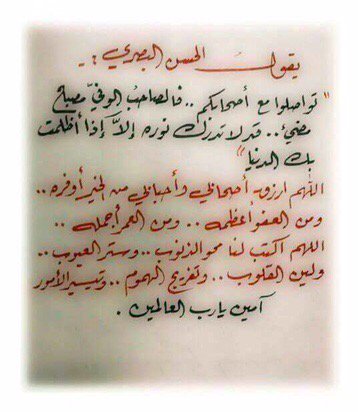 يقول الحسن البصري :-
"تواصلوا مع أصحابكم .. فالصاحب الوفيّ مصباح
مضيء .. قد لا تدرك نوره إلاَّ إذا أظلمت
بك الدنيا"
اللهم ارزق أصحابي وأحبابي من الخير أوفره ..
ومن العفو أعظمه .. ومن العمر أجمله ..
اللهم اكتب لنا محو الذنوب .. وستر العيوب ..
ولين القلوب .. وتفريج الهموم .. وتيسير الأمور
آمين يارب العالمين .